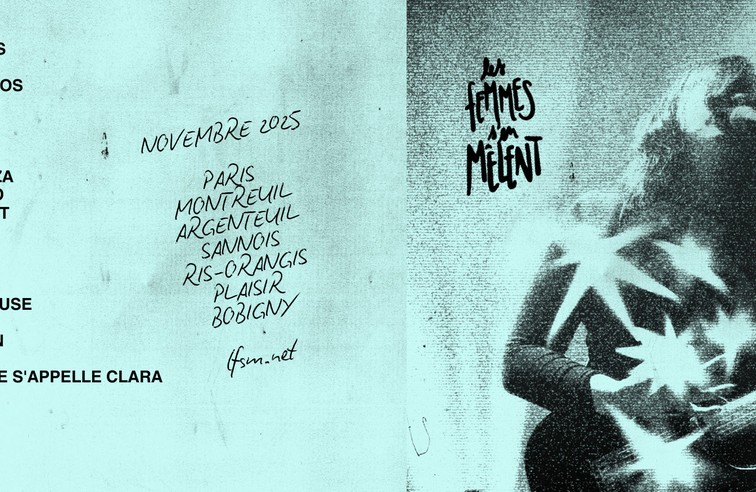 S
OS
ZA
O
T
USE
N
E S'APPELLE CLARA
NOVEMBRE 2025
PARIS
MONTREUIL
ARGENTEUIL
SANNOIS
RIS-ORANGIS
PLAISIR
BOBIGNY
lfsm.net
les
femmes
s'en
mêlent